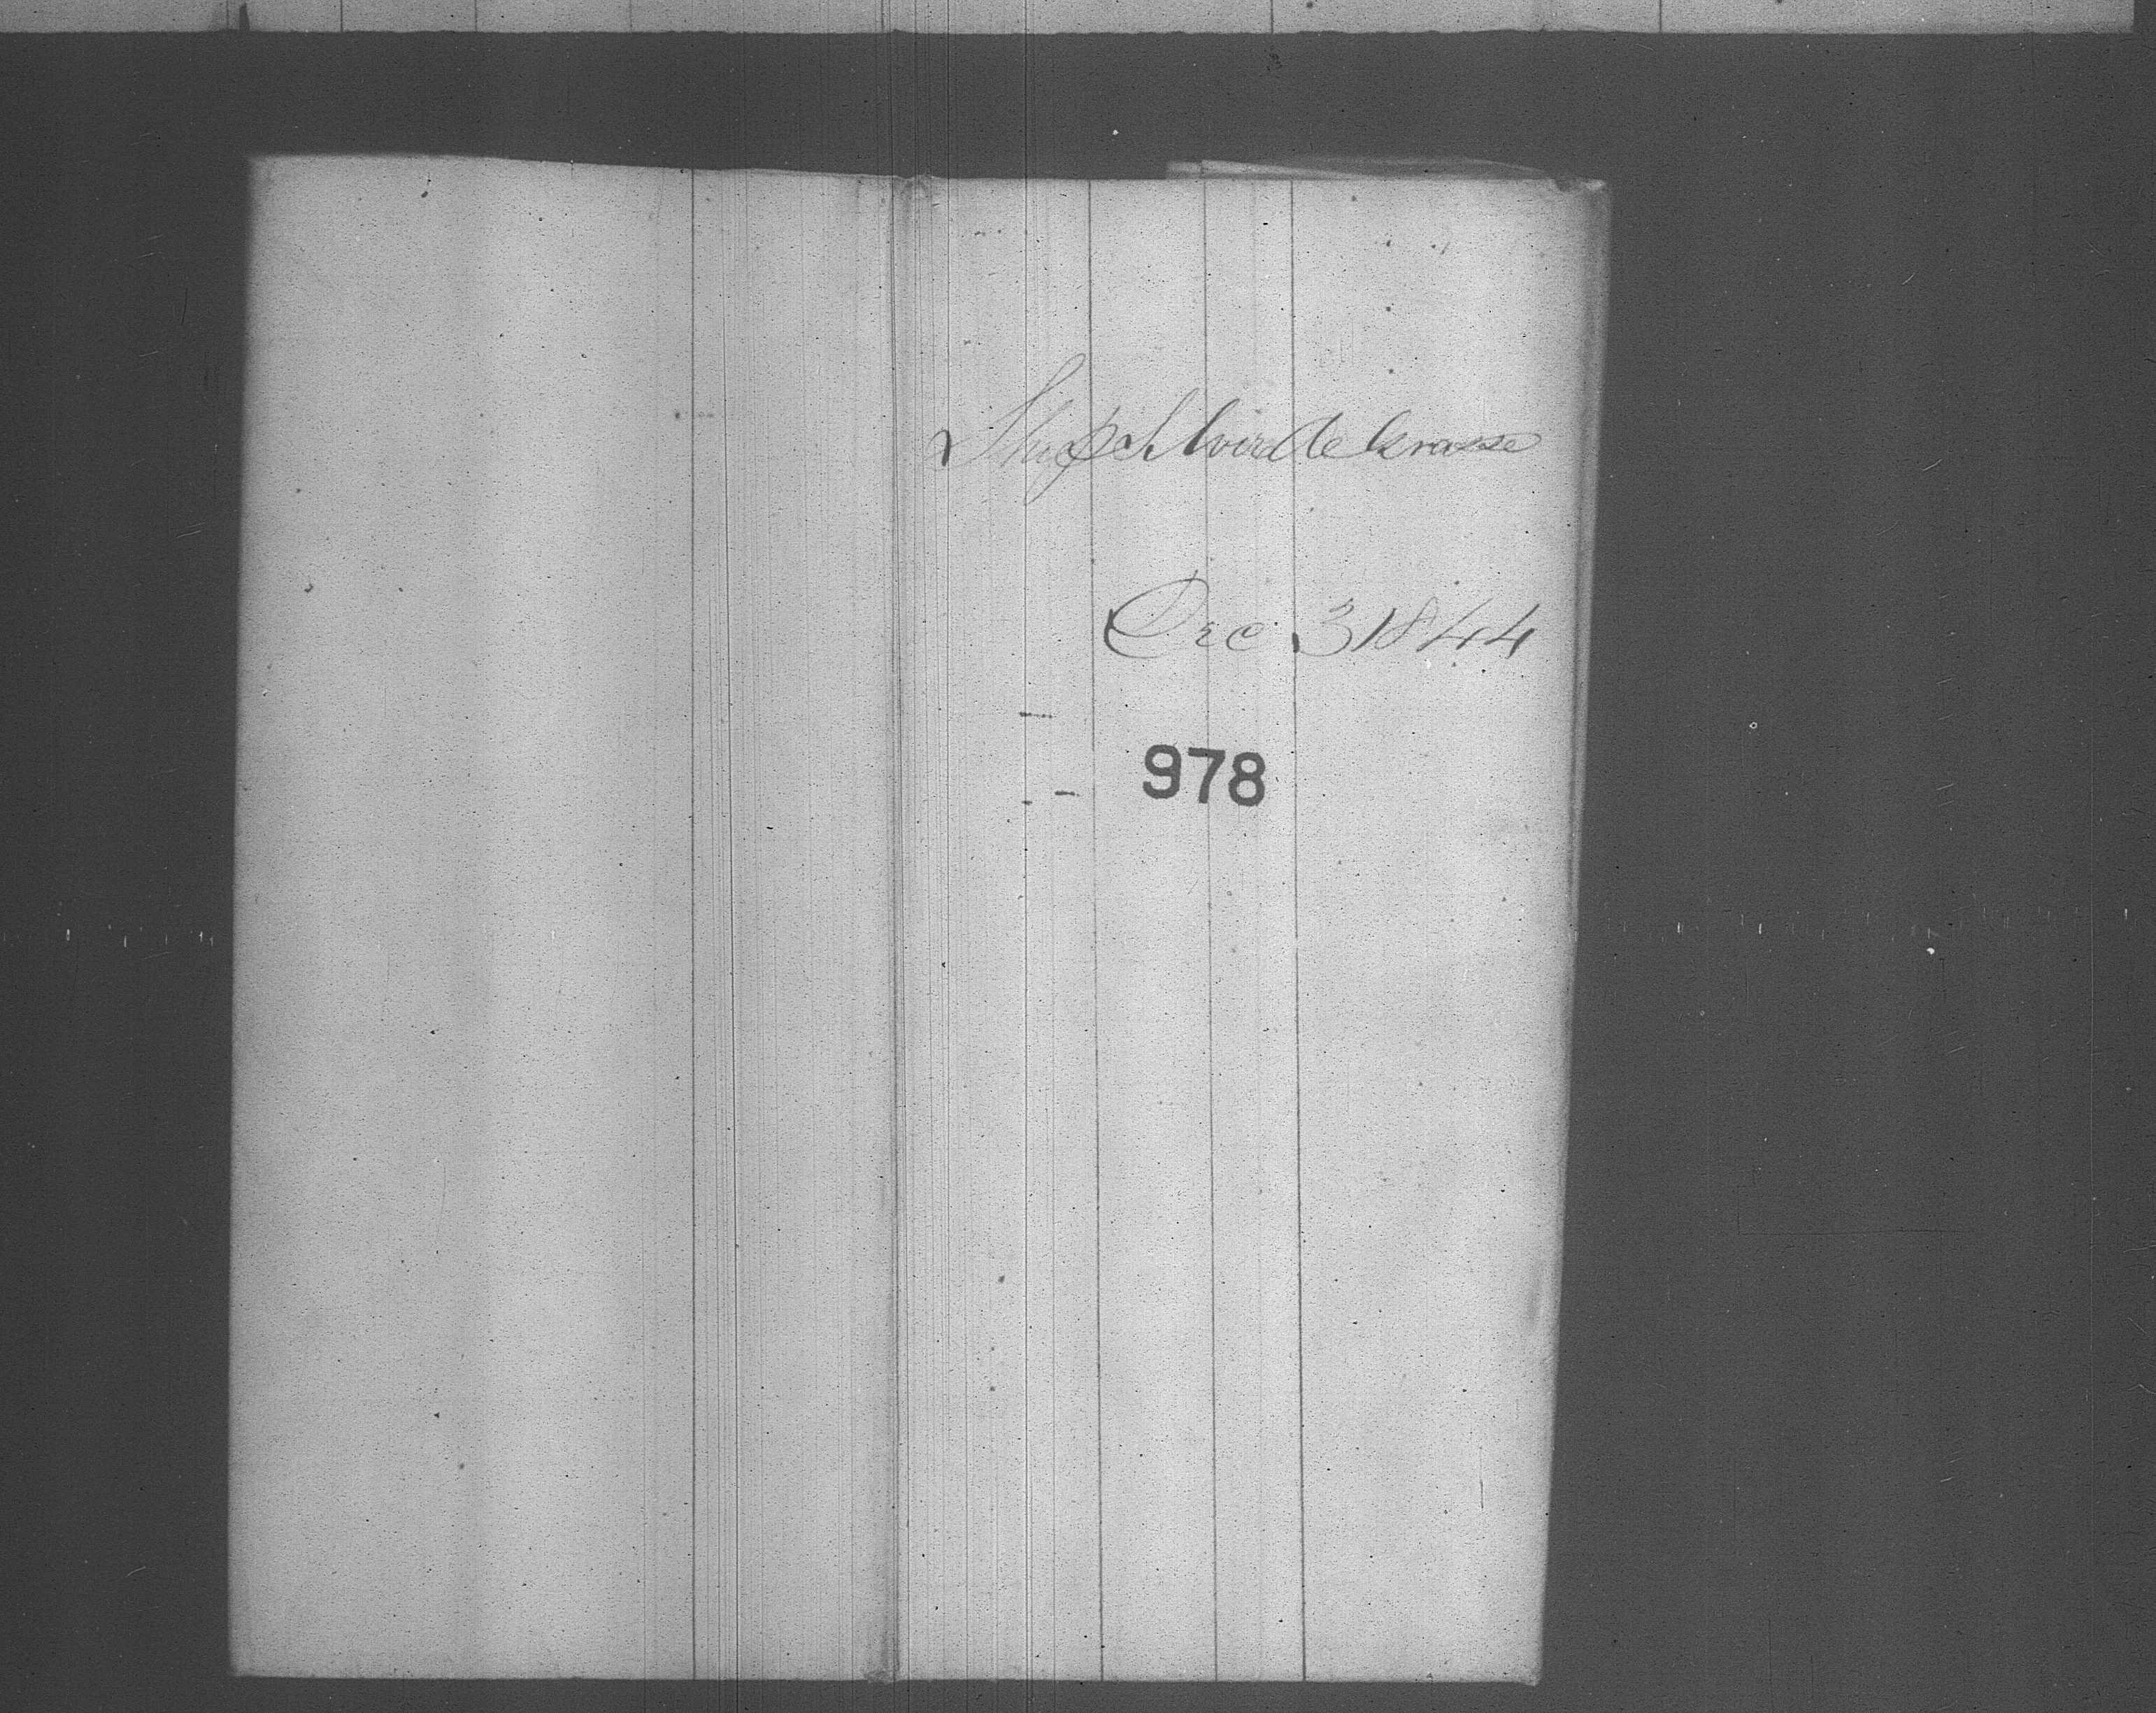 Ship Havre de Grasse
Dec 3 1844
978